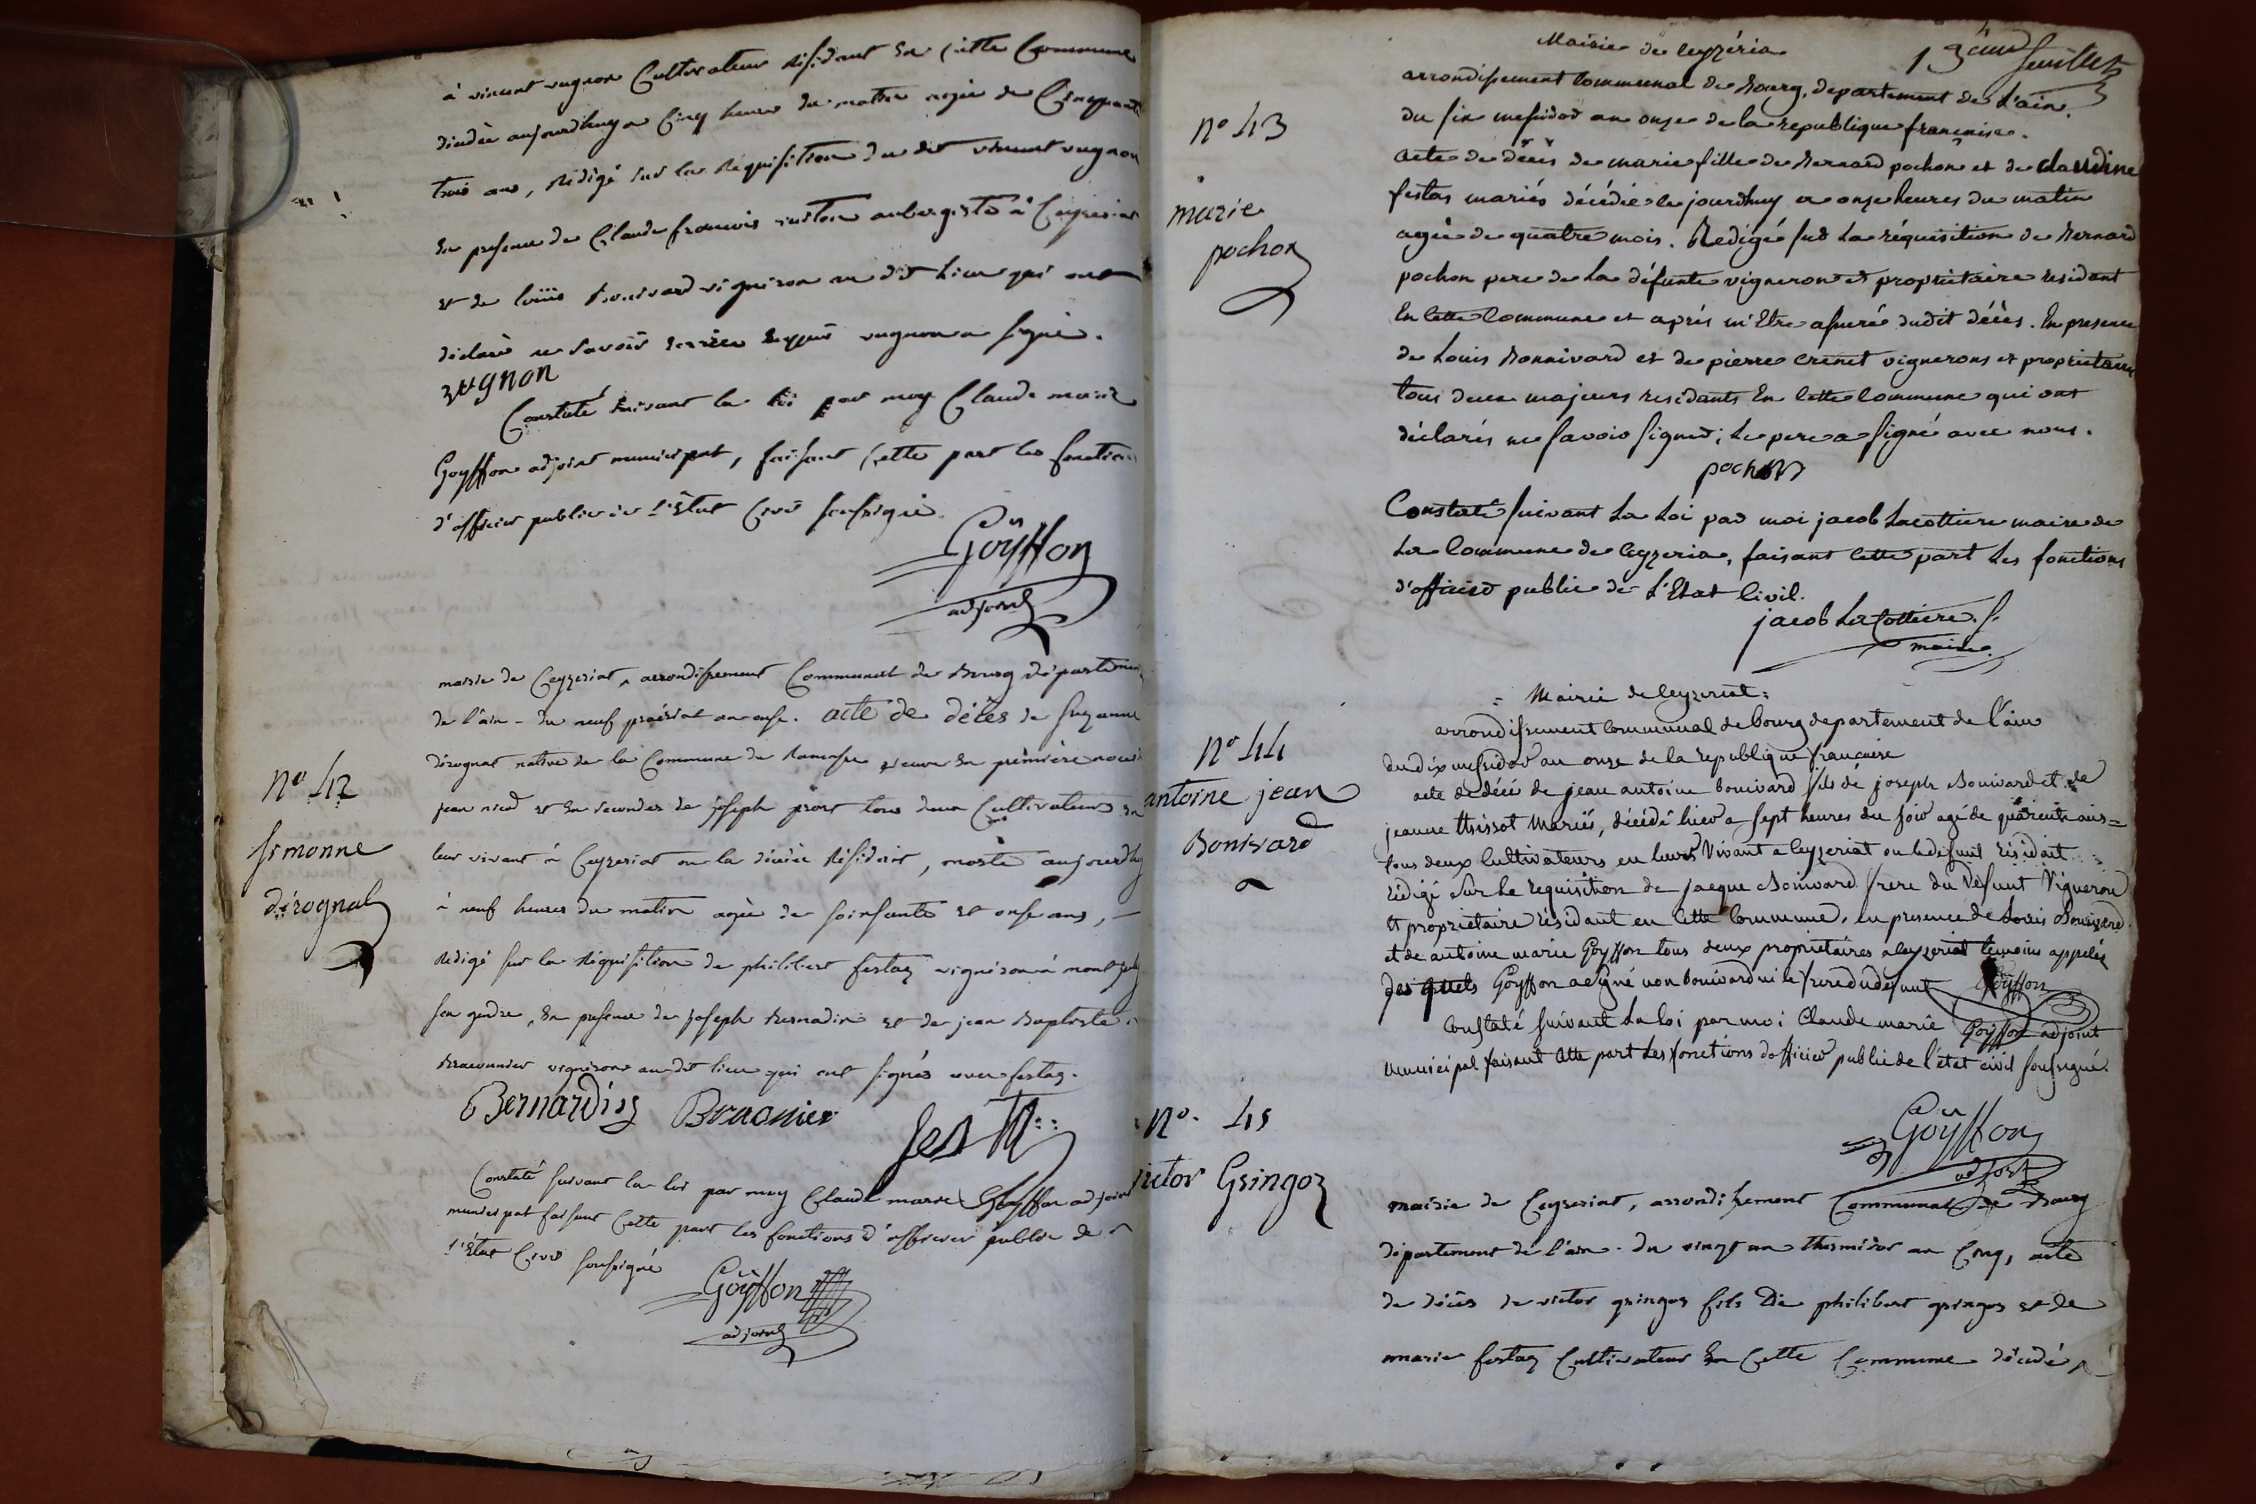 à vincent vugnon Cultivateur Résidant En Cette Commune
décédée aujourdhuy a Cinq heures du matin agée de Cinquante
trois ans, Rédigé sur la Réquisition du dit vincent vugnon
En presence de Claude francois aubergiste à Ceyzeriat
et de louis bonivard vigneron au dit lieu qui ont
déclaré ne savoir vugnon a signé.
vugnon
Constaté suivant la loi par moy Claude marie
Goyffon adjoint municipal, faisant Cette part les fonctions
d'officier public de l'Etat Civil soussigné
Goÿffon
adjoint
mairie de Ceyzeriat, arrondissement Communal de Bourg département
de l'ain - du neuf prairial an onse. acte de décès de suzanne
dérognat native de la Commune de veuve En première noces
jean et En secondes de joseph tous deux Cultivateurs En
leur vivant à Ceyzeriat ou la décédée Résidoit, morte aujourdhuy
à neuf heures du matin agée de soixsante et onse ans, -
Redigé sur la Réquisition de philibert festaz vigneron à
son gendre, En presence de joseph Bernardin et de jean Baptiste
vigneron au dit lieu qui ont signés avec festaz.
Bernardin Bracnier festaz
Constaté suivant la loi par moy Claude marie Goyffon adjoint
municipal faisant Cette part les fonctions d'officier public de
l'Etat Civil soussigné
Goÿffon
adjoint
No 42
simonne
dérognat
Mairie de ceyzéria
13ème feuillet
arrondissement communal de Bourg, departement de L'ain.
du six messidor an onze de la republique française.
No 43
marie
pochon
acte de décès de marie fille de Bernard pochon et de claudine
festas mariés décédée le jourdhuy a onze heures du matin
agée de quatre mois. Redigé sur la réquisition de Bernard
pochon pere de la défunte vigneron et proprietaire residant
En cette commune et aprés m'Etre assuré dudit décès. En presence
de Louis Bonnivard et de pierre vignerons et proprietaires
tous deux majeurs residants En cette commune qui ont
déclarés ne savoir signer; le pere a signé avec nous.
pochon
Constaté suivant la Loi par moi jacob Lacottiere maire de
la commune de Ceyzeria, faisant cette part les fonctions
d'officier public de l'Etat civil.
jacob La Cottiere
maire
Mairie de Ceyzeriat
arrondissement communal de bourg departement de l'ain
du dix messidor an onze de la republique francaise
No 44
antoine jean
Bonivard
acte de décés de jean antoine bonivard fils de joseph Bonivard et de
jeanne mariés, décédé hier a sept heures du soir agé de quarente ans
tous deux cultivateurs en leurs vivant a Ceyzeriat ou le defunt résidait
rédigé sur la requisition de jacque Bonivard frere du défunt vigneron
et proprietaire résidant en cette commune, en presence de Louis Bonivard
et de antoine marie Goyffon tous deux proprietaires a Ceyzeriat temoins appelés
des quels Goyffon a signé non bonivard ni le frere du defunt Goÿffon
Constaté suivant la loi par moi Claude marie Goyffon adjoint
municipal faisant cette part les fonctions d'officier public de l'état civil soussigné.
Goÿffon
adjoint
No. 45
victor Gringoz
mairie de Ceyzeriat, arrondissement Communal de Bourg
département de l'ain. du vingt un thermidor an Cinq, acte
de décès de victor gringoz fils De philibert gringoz et de
marie festaz Cultivateur En Cette Commune décédé